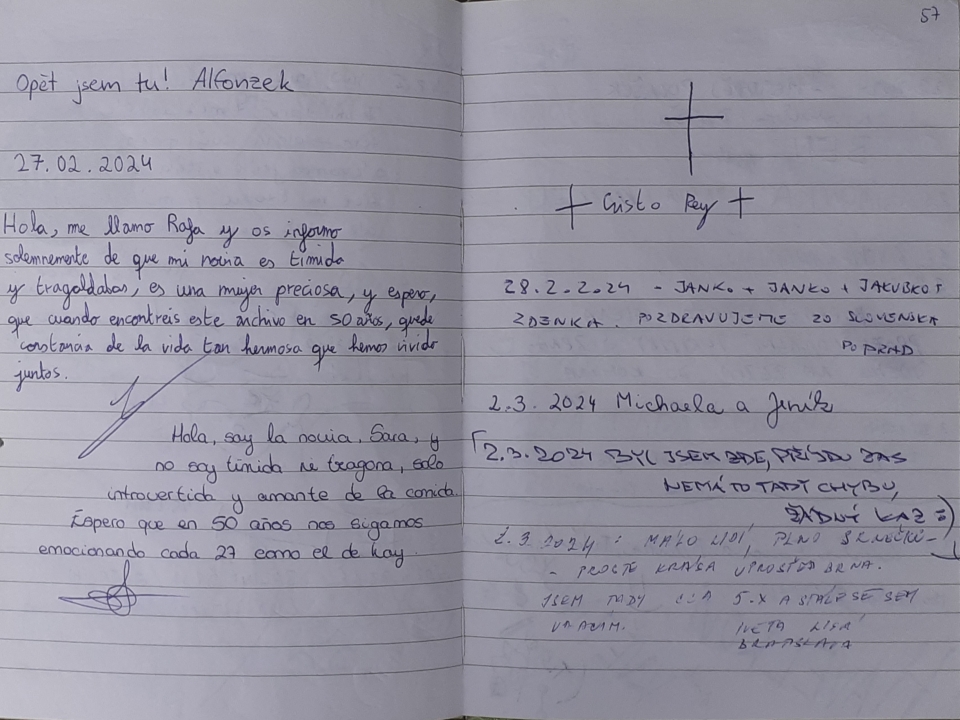 Opět jsem tu! Alfonzek
27.02.2024
Hola, me llamo Rafa y os informo
solemnemente de que mi novia es timida
y tragaldabas, es una mujer preciosa, y espero,
que cuando encontreis este archivo en 50 años, quede
constancia de la vida tan hermosa que hemos vivido
juntos.
Hola, soy la novia, Sara, y
no soy timida ni tragona, solo
introvertida y amante de la comida.
Espero que en 50 años nos sigamos
emocionando cada 27 como el de hoy
57
Cristo Rey
28.2.2024 - JANKO + JANKO + JAKUBKO +
ZDENKA. POZDRAVUJEME ZO SLOVENSKA
POPRAD
2.3.2024 Michaela a Jeník
2.3.2024 BYL JSEM ZDE, PŘÍJDU ZAS
NEMÁ TO TADY CHYBU,
ŽÁDNÝ KAZ =)
2.3.2024: MÁLO LIDÍ, PLNO SLUNÍČKA -
- PROSTĚ KRÁSA UPROSTŘED BRNA.
JSEM TADY CCA 5.X A STÁLE SE SEM
VRACÍM.